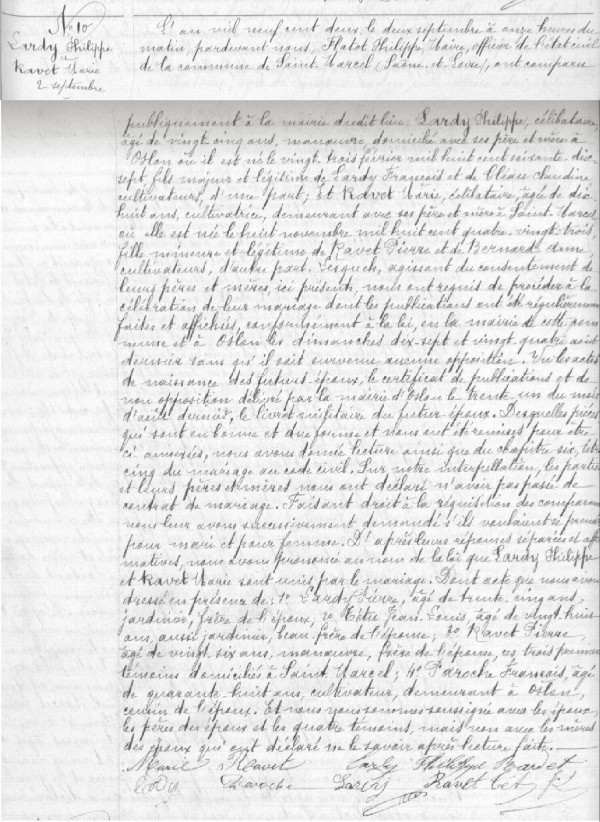 N° 10
Lardy Philippe
&
Ravot Marie
2 septembre
L'an mil neuf cent deux, le deux septembre à onze heures du
matin, pardevant nous, Flatot Philippe, Maire, officier de l'état civil
de la commune de Saint-Marcel (Saône-et-Loire), ont comparu
publiquement à la mairie dudit lieu: Lardy Philippe, célibataire,
âgé de vingt-cinq ans, manœuvre, domicilié avec ses père et mère à
Oslon où il est né le vingt-trois février mil huit cent soixante-dix-
sept, fils majeur et légitime de Lardy François et de Claudine
cultivateurs, d'une part; Et Ravot Marie, célibataire, âgée de dix-
huit ans, cultivatrice, demeurant avec ses père et mère à Saint-Marcel
où elle est née le huit novembre mil huit cent quatre-vingt-trois,
fille mineure et légitime de Ravot Pierre et de Bernard Anne,
cultivateurs, d'autre part. Lesquels, agissant du consentement de
leurs pères et mères ici présents, nous ont requis de procéder à la
célébration de leur mariage dont les publications ont été régulièrement
faites et affichées, conformément à la loi, en la mairie de cette com-
mune et à Oslon les dimanches dix-sept et vingt-quatre août
dernier sans qu'il soit survenu aucune opposition. Vu les actes
de naissance des futurs époux, le certificat de publications et de
non opposition délivré par la mairie d'Oslon le trente-un du mois
d'août dernier, le livret militaire du futur époux. Desquelles pièces
qui sont en bonne et due forme et nous ont été remises pour être
ci-annexées, nous avons donné lecture ainsi que du chapitre six, titre
cinq du mariage au code civil. Sur notre interpellation, les parties
et leurs pères et mères nous ont déclaré n'avoir pas passé de
contrat de mariage. Faisant droit à la réquisition des comparants
nous leur avons successivement demandé s'ils voulaient se prendre
pour mari et pour femme. D'après leurs réponses séparées et affir-
matives, nous avons prononcé au nom de la loi que Lardy Philippe
et Ravot Marie sont unis par le mariage. Dont acte que nous avons
dressé en présence de: 1° Lardy Pierre, âgé de trente-cinq ans,
jardinier, frère de l'époux; 2° Têtu Jean-Louis, âgé de vingt-huit
ans, aussi jardinier, beau-frère de l'épouse; 3° Ravot Pierre,
âgé de vingt-six ans, manœuvre, frère de l'épouse, ces trois premiers
témoins domiciliés à Saint-Marcel; 4° Paroche François, âgé
de quarante-huit ans, cultivateur, demeurant à Oslon,
cousin de l'époux. Et nous nous sommes soussigné avec les époux,
les pères des époux et les quatre témoins, mais non avec les mères
des époux qui ont déclaré ne le savoir après lecture faite.
Marie Ravot Lardy Philippe Ravot
Paroche Lardy Ravot